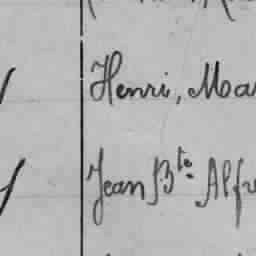 Henri, Ma
Jean Bte Alf